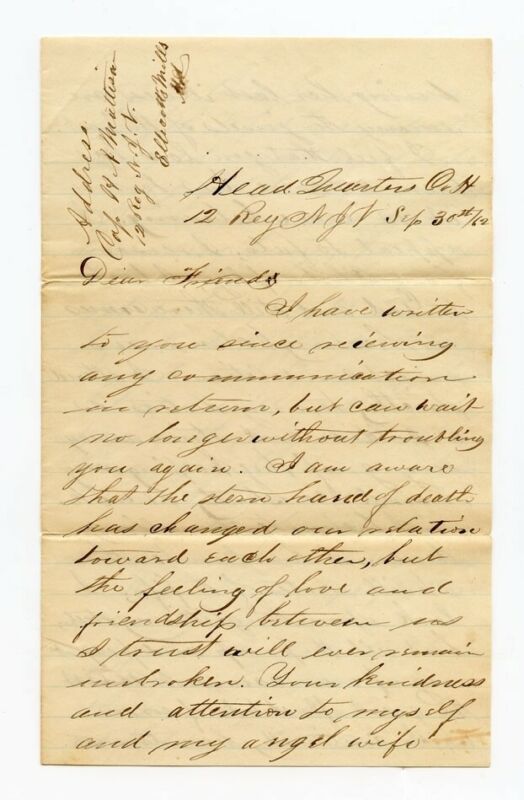 Address
Cap H A Mattison
12 Reg N. J. V.
Ellicotts Mills
Md
Head Quarters Co H
12 Reg N J V Sep 30th/62
Dear Friends
I have written
to you since reieving
any communication
in return, but can wait
no longer without troubling
you again. I am aware
that the stern hand of death
has changed our relation
toward each other, but
the feeling of love and
friendship between us
I trust will ever remain
unbroken. Your kindness
and attention to myself
and my angel wife